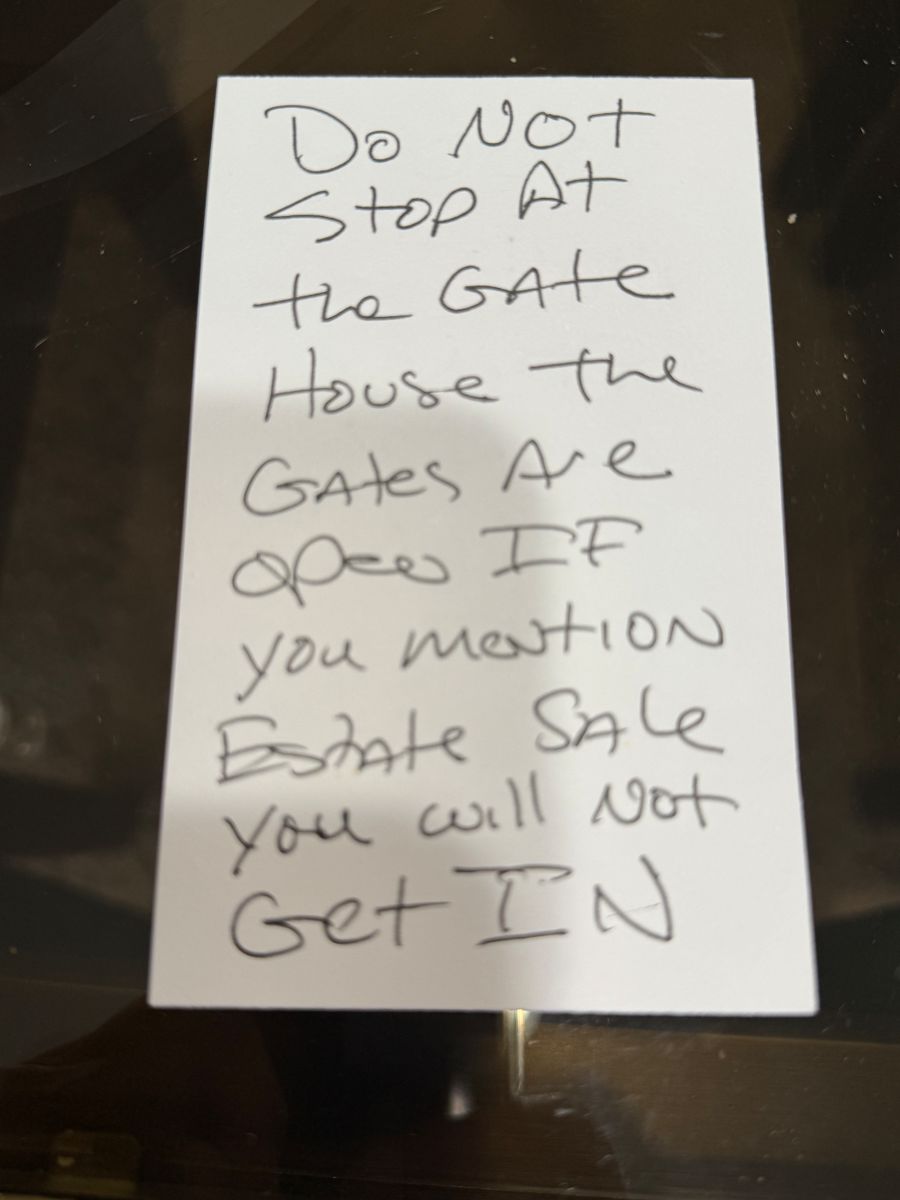 Do Not
Stop At
the GAte
House the
GAtes Are
open IF
you mention
Estate SAle
you will Not
Get IN